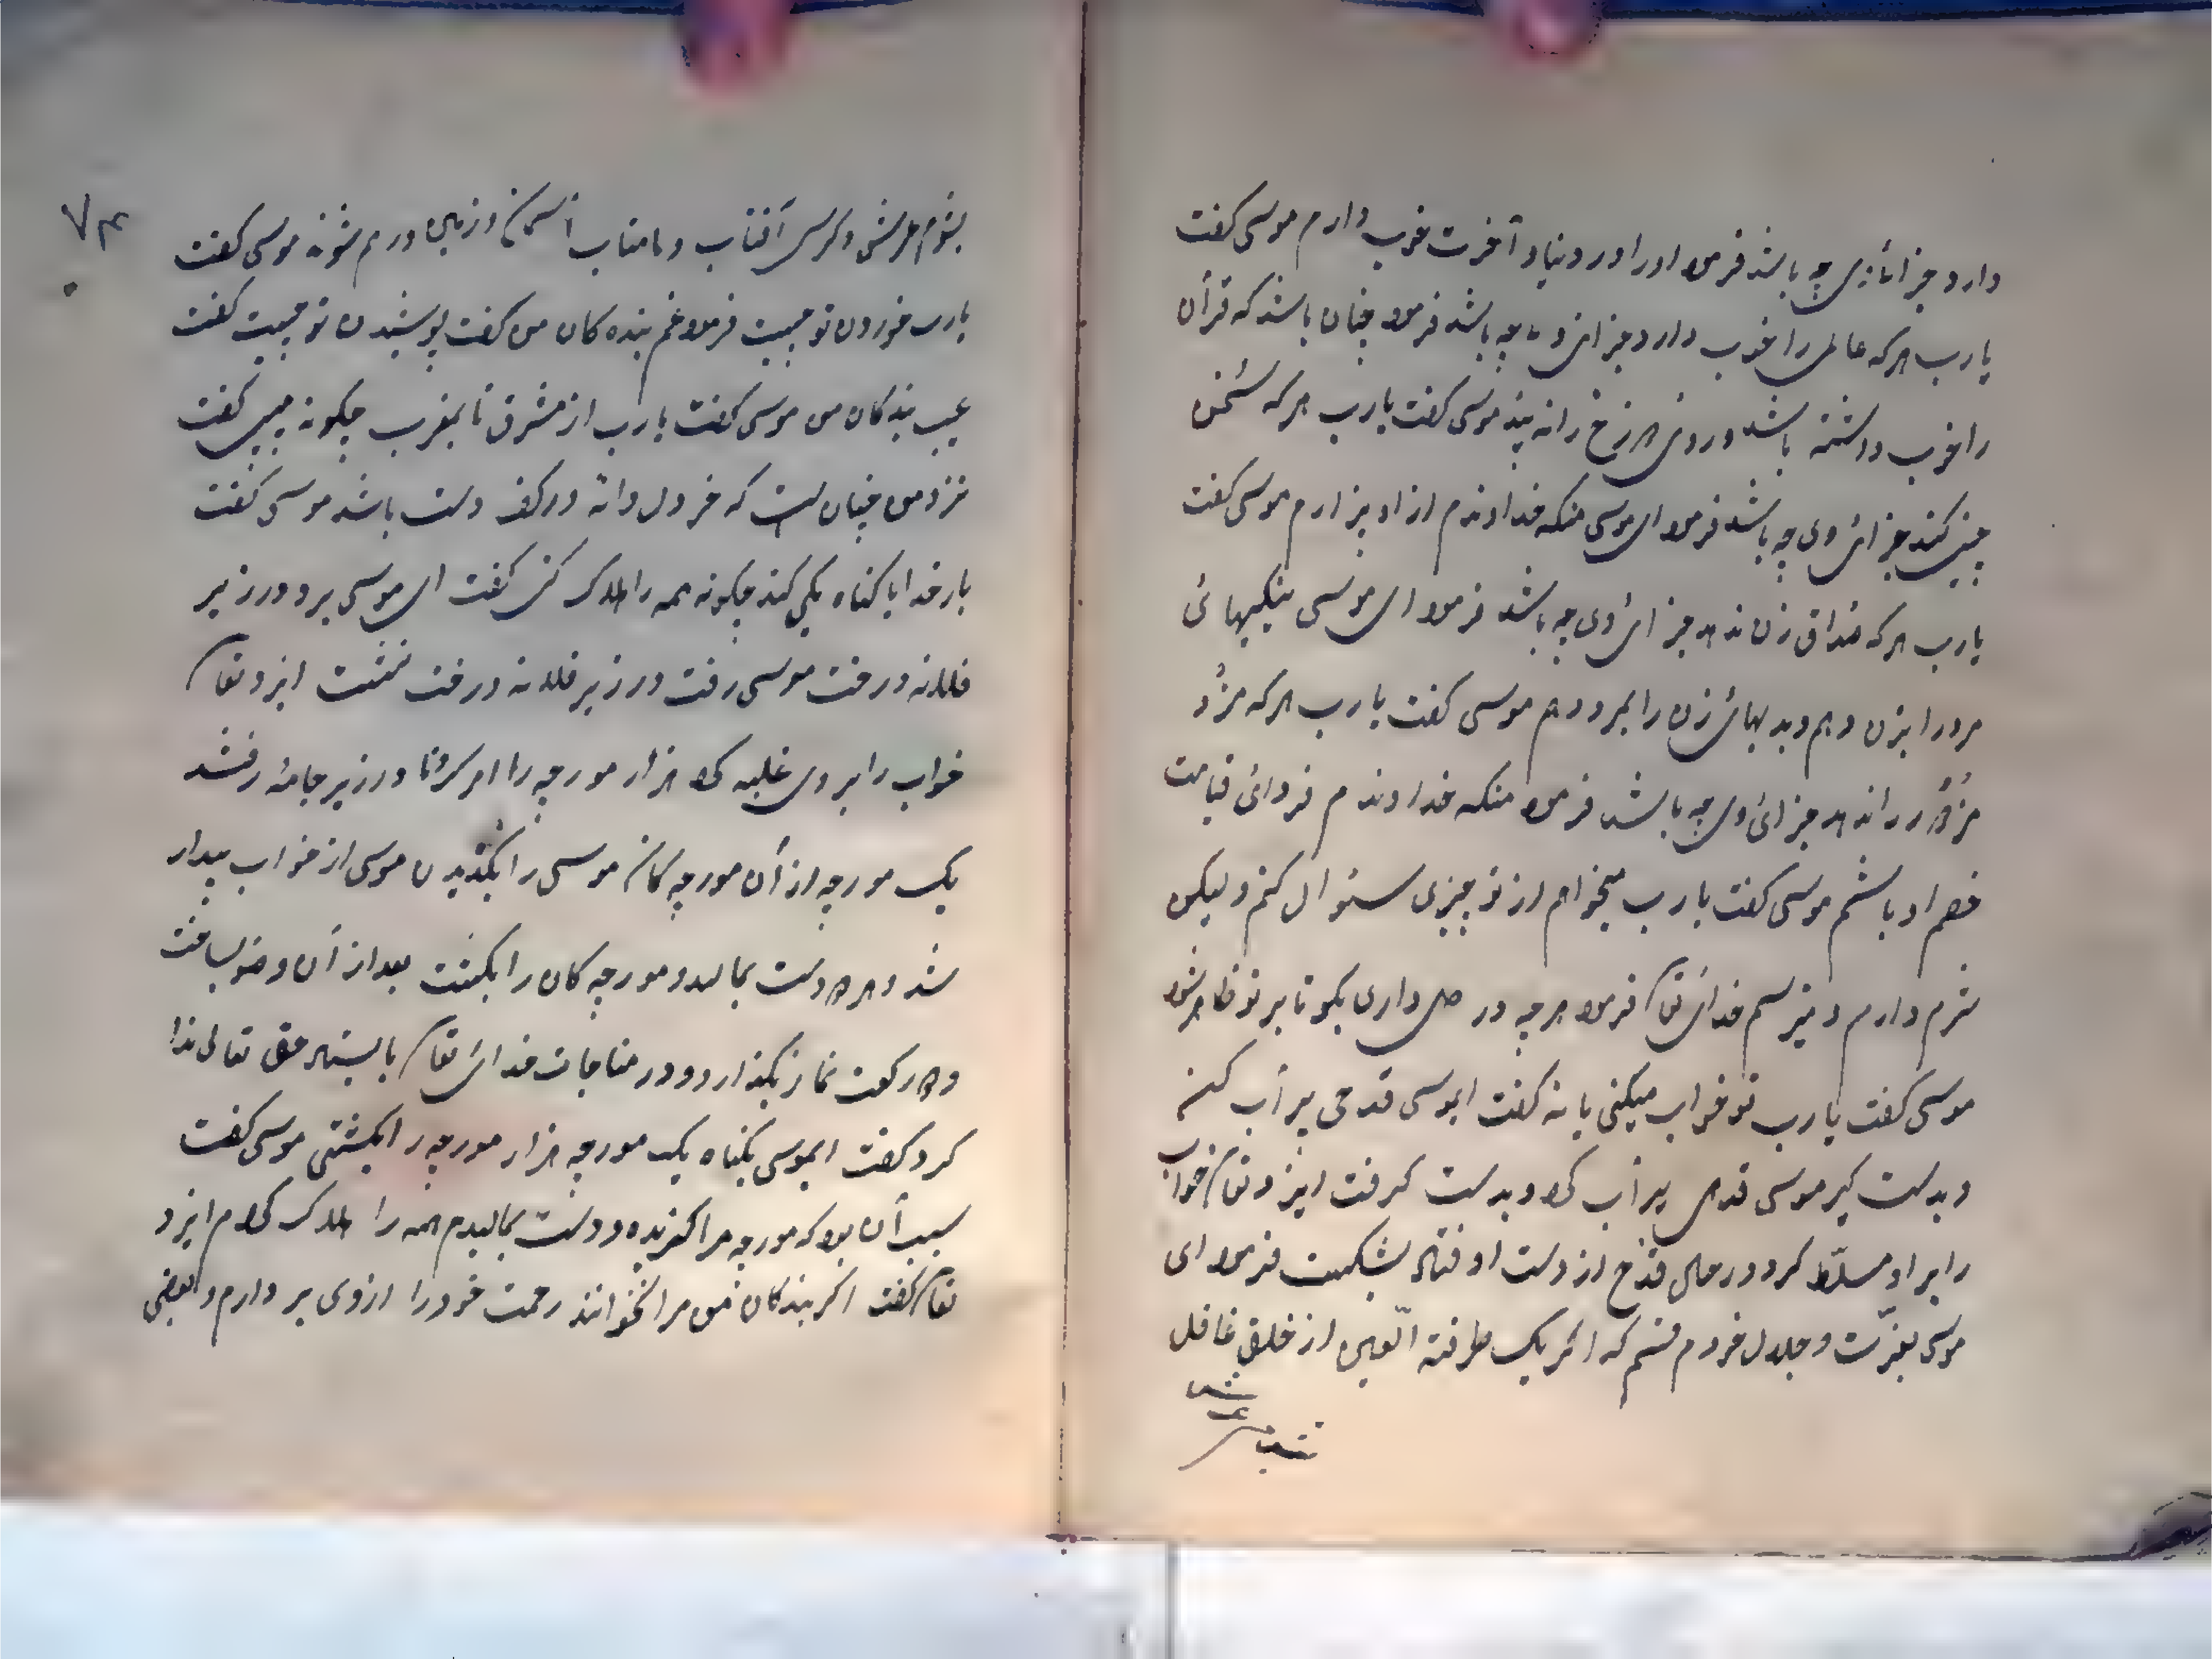 دارد جزائ وی چه باشد فرمود او را در دنیا و آخرت خوب دارم موسی گفت
یارب هرکه عالمی را خوب دارد جزای وی چه باشد فرمود چنان باشد که قرآن
را خوب داشته باشد و روی دوزخ را نه بیند موسی گفت یارب هر که سخن
چینی کند جزائی وی چه باشد فرمود ای موسی منکه خداوندم از او بیزارم موسی گفت
یارب هرکه صداق زن ندهد جزائی وی چه باشد فرمود ای موسی نیکیهائی
مرد را بزن دهم و بدیهائی زن را بمرد دهم موسی گفت یارب هرکه مزد
مزدور را ندهد جزائی وی چه باشد فرمود منکه خداوندم فردائی قیامت
خصم او باشم موسی گفت یارب میخواهم از تو چیزی سئوال کنم و لیکن
شرم دارم و میترسم خدائی تعا فرمود هرچه در دل داری بگو تا بر تو ظاهر شود
موسی گفت یارب تو خواب میکنی یا نه گفت ایموسی قدحی پر آب کن
و بدست گیر موسی قدحی پر آب کرد و بدست گرفت ایزد تعا خواب
را بر او مسلّط کرد در حال قدح از دست او فتاد بشکست فرمود ای
موسی بعزّت و جلال خودم قسم که اگر یک طرفة العین از خلق غافل
۷۴
بشوم عرش و کرسی آفتاب و مامتاب آسمان و زمین درهم شوند موسی گفت
یارب خوردن تو چیست فرمود غم بنده کان من گفت پوشیدن تو چیست گفت
عیب بندکان من موسی گفت یارب از مشرق تا بمغرب چکونه بینی گفت
نزد من چنان است که خردل دانه در کف دست باشد موسی گفت
بار خدایا کناه یکی کند چکونه همه را هلاک کنی گفت ای موسی برو در زیر
فلانه درخت موسی رفت در زیر فلانه درخت نشست ایزد تعا
خواب را بر وی غلبه کرد هزار مورچه را امر کرد تا در زیر جامهٔ رفتند
یک مورچه از آن مورچه کان موسی را بکزیدن موسی از خواب بیدار
شد و هر دو دست بمالید و مورچه کان را بکشت بعد از آن وضو بساخت
دو رکعت نماز بگذارد و در مناجات خدائی تعا بایستاد حق تعالی ندا
کرد گفت ایموسی بکناه یک مورچه هزار مورچه را بکشتی موسی گفت
سبب آن بود که مورچه مرا کزیده و دست بمالیدم همه را هلاک کردم ایزد
تعا گفت اگر بندکان من مرا نخوانند رحمت خود را از وی بر دارم و بعضی